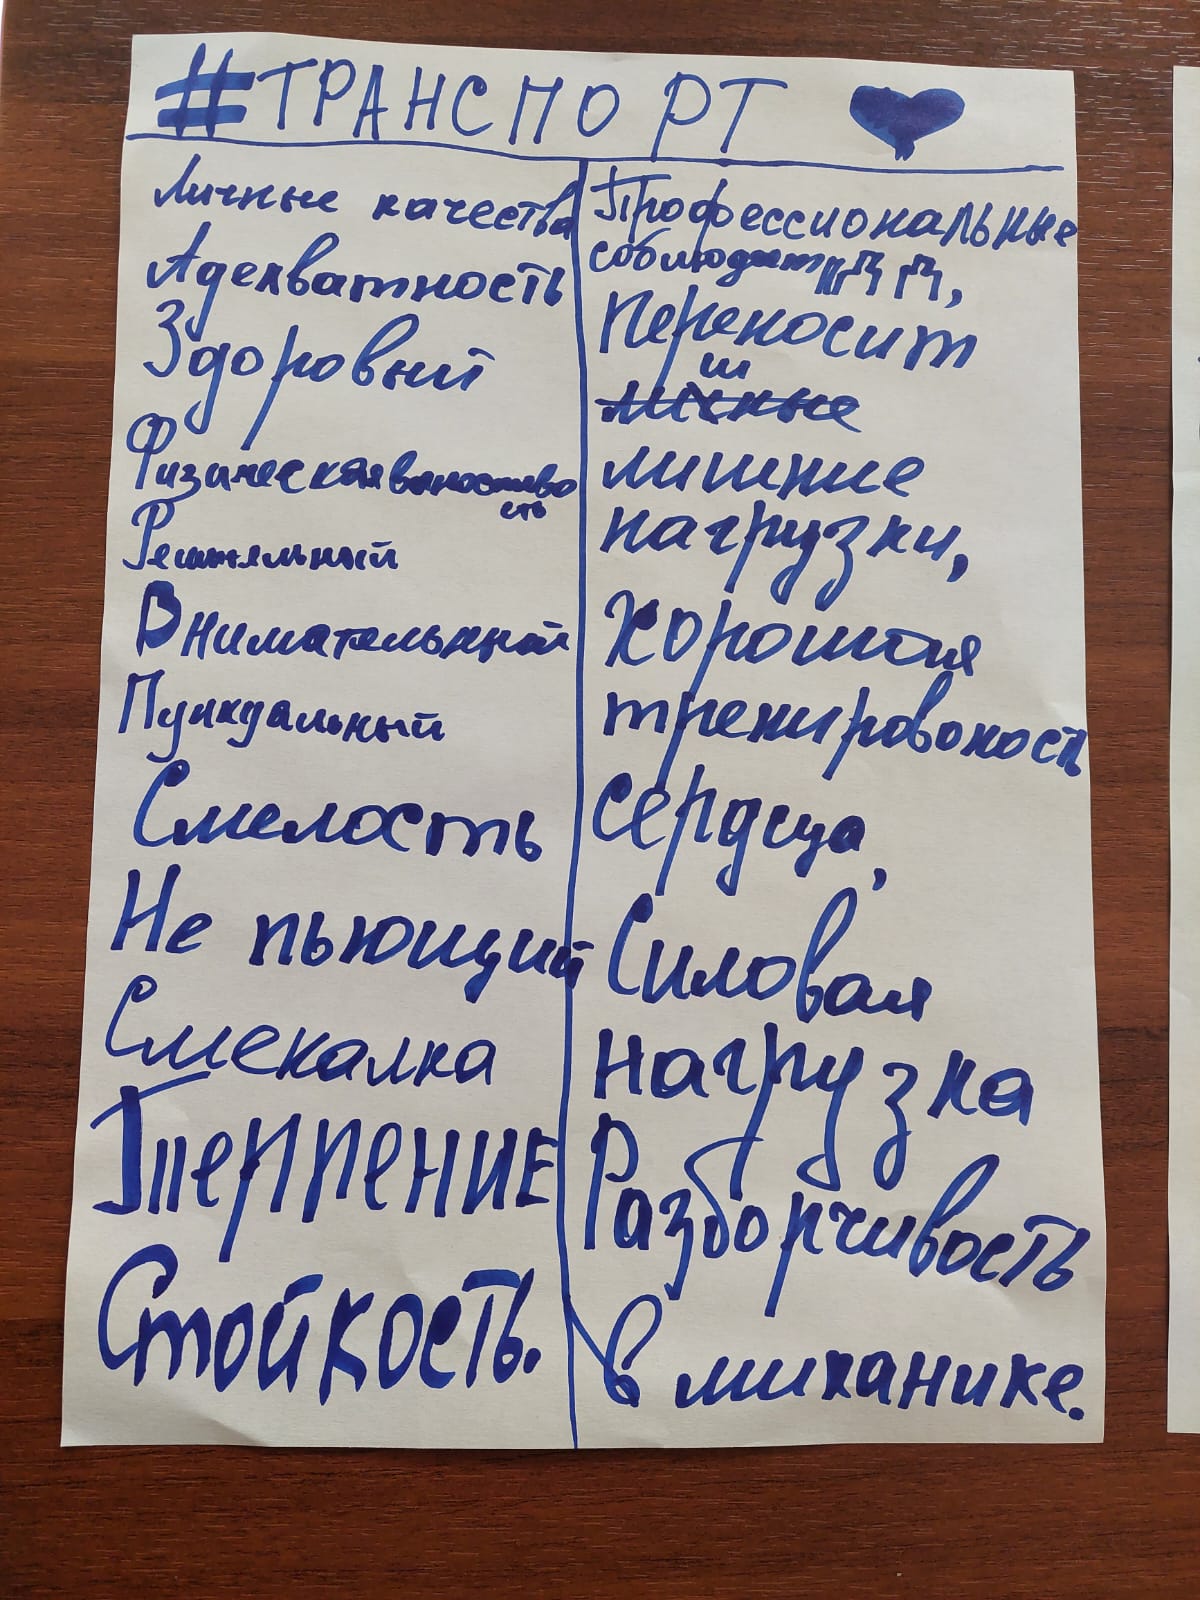 #ТРАНСПОРТ
Личные качества
Адекватность
Здоровый
Физическая выносливо
сть
Решительный
Внимательный
Пункдальный
Смелость
Не пьющий
Смекалка
Терпение
Стойкость.
Профессиональные
соблюдает ПДД,
Переносит
ш
лишние
нагрузки,
Хорошая
тренировоность
сердца,
Силовая
нагрузка
Разборчивость
в миханике.